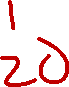 1
20